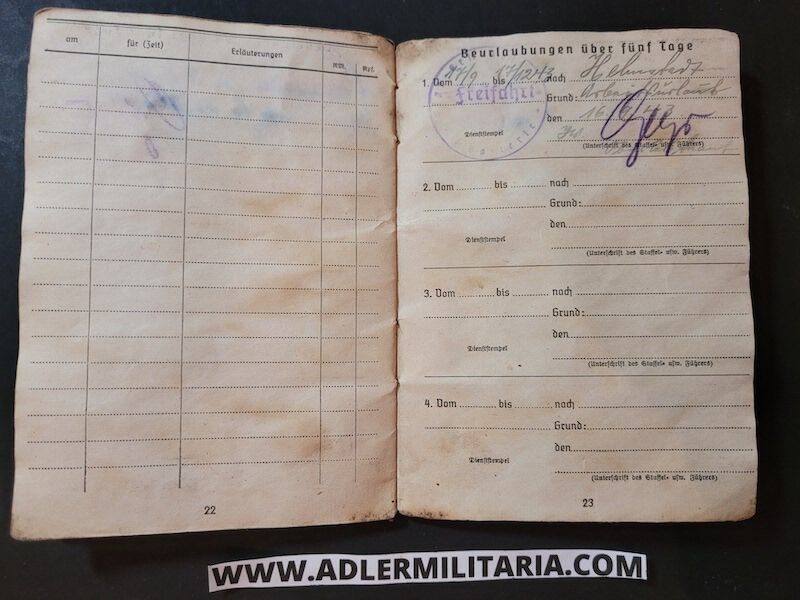 am für (Zeit) Erläuterungen
22
Beurlaubungen über fünf Tage
1. Vom 17/9 bis nach Helmstedt
Freifahrt
Grund: Arbeitsurlaub
den
Dienststempel
(Unterschrift des Staffel- usw. Führers)
2. Vom bis nach
Grund:
den
Dienststempel
(Unterschrift des Staffel- usw. Führers)
3. Vom bis nach
Grund:
den
Dienststempel
(Unterschrift des Staffel- usw. Führers)
4. Vom bis nach
Grund:
den
Dienststempel
(Unterschrift des Staffel- usw. Führers)
23
WWW.ADLERMILITARIA.COM